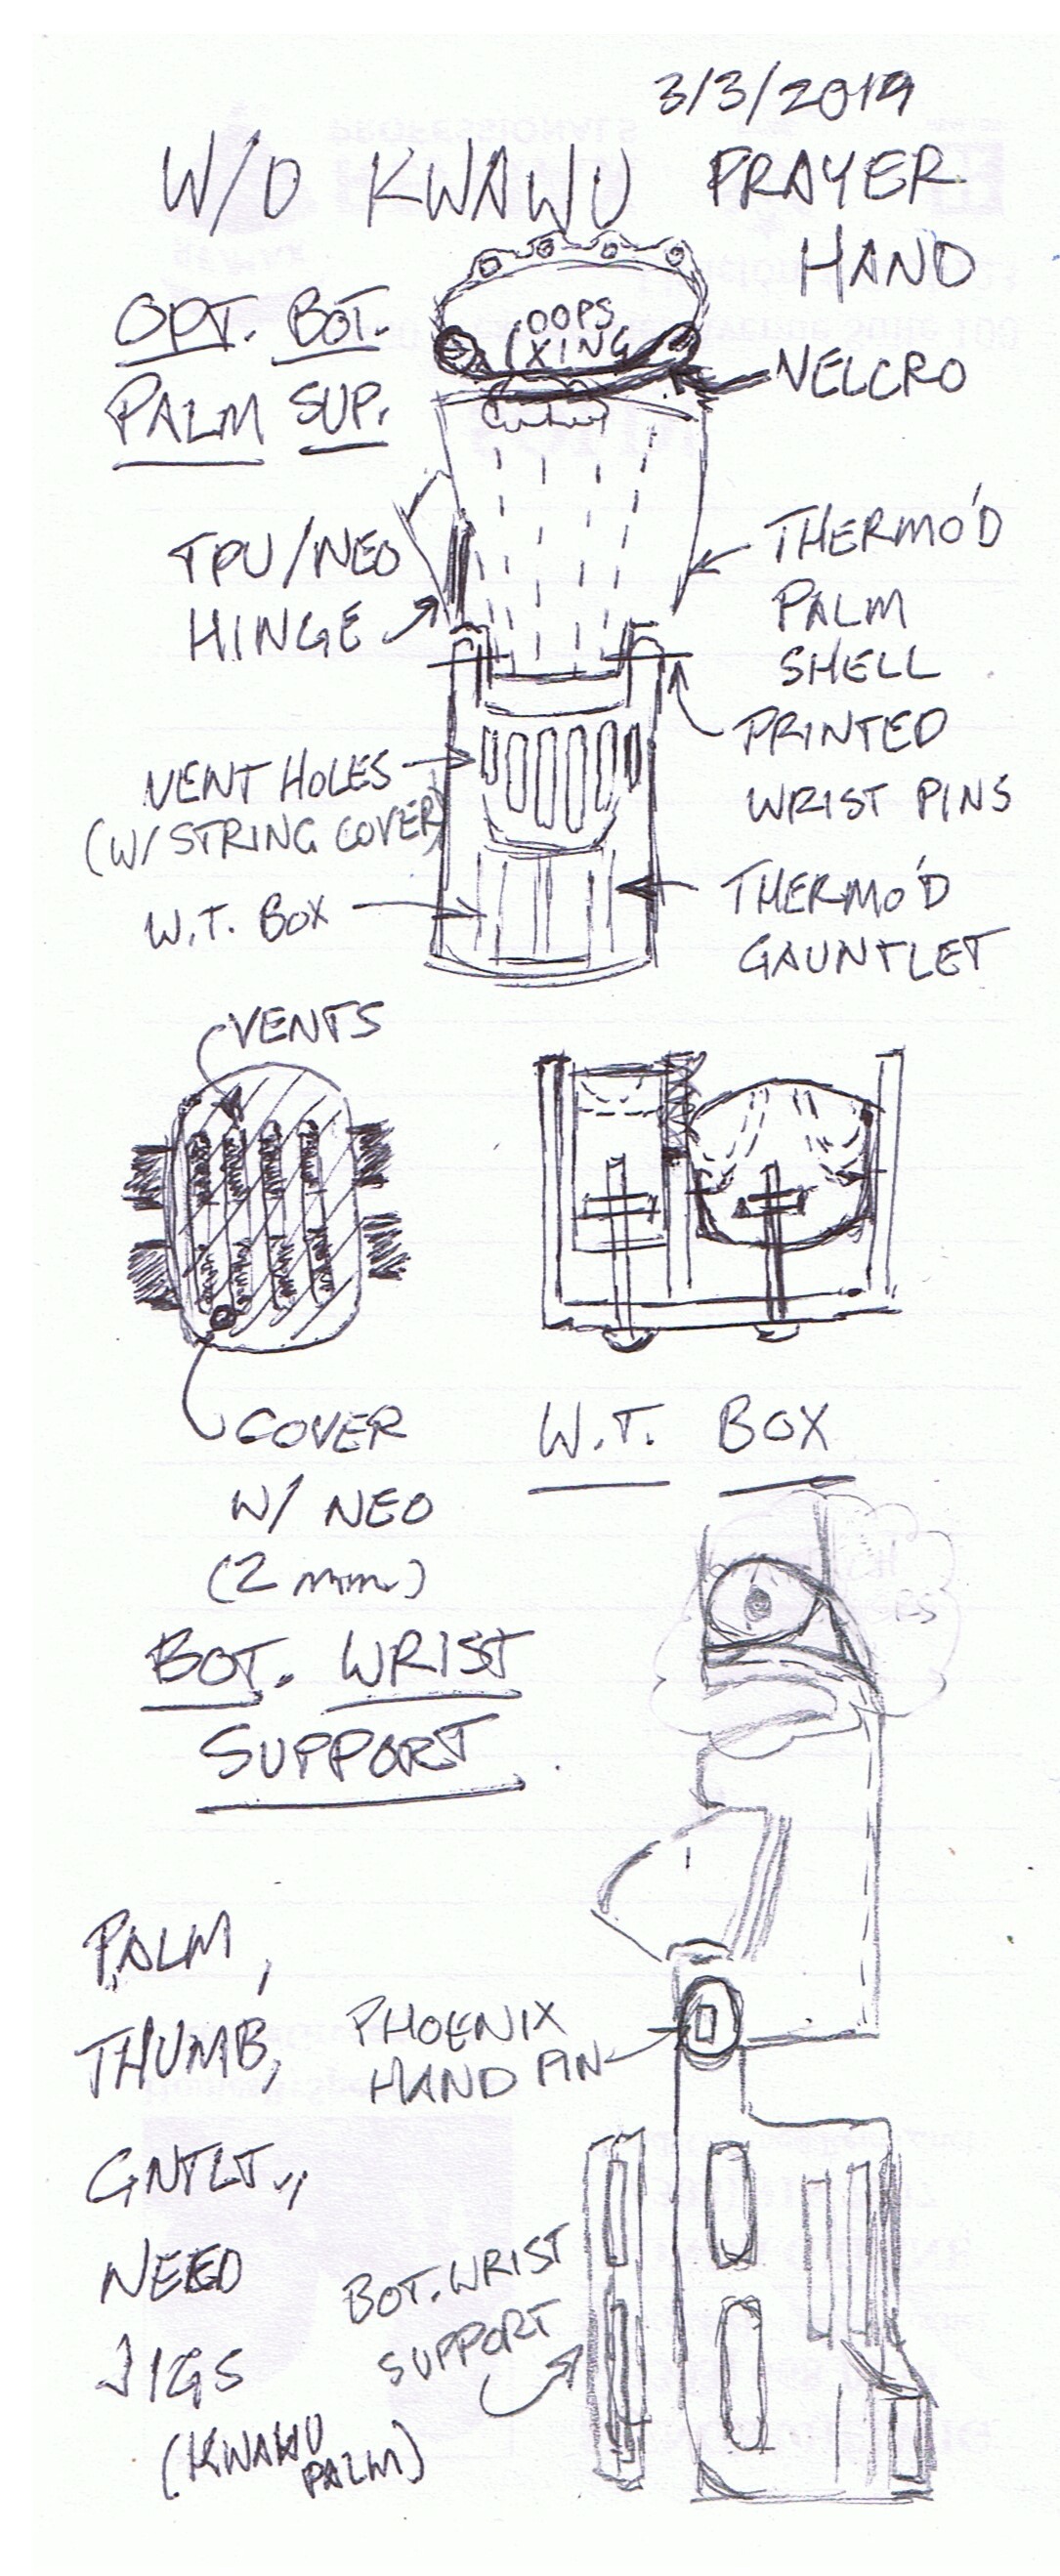 3/3/2019
W/O KWAWU PRAYER
HAND
OPT. BOT.
PALM SUP.
OOPS
XING
VELCRO
TPU/NEO
HINGE
THERMO'D
PALM
SHELL
PRINTED
WRIST PINS
VENT HOLES
(W/STRING COVER)
W.T. BOX
THERMO'D
GAUNTLET
VENTS
COVER
W/ NEO
(2 mm.)
W.T. BOX
BOT. WRIST
SUPPORT
PALM,
THUMB,
GNTLT.,
NEED
JIGS
(KWAWU
PALM)
PHOENIX
HAND PIN
BOT. WRIST
SUPPORT